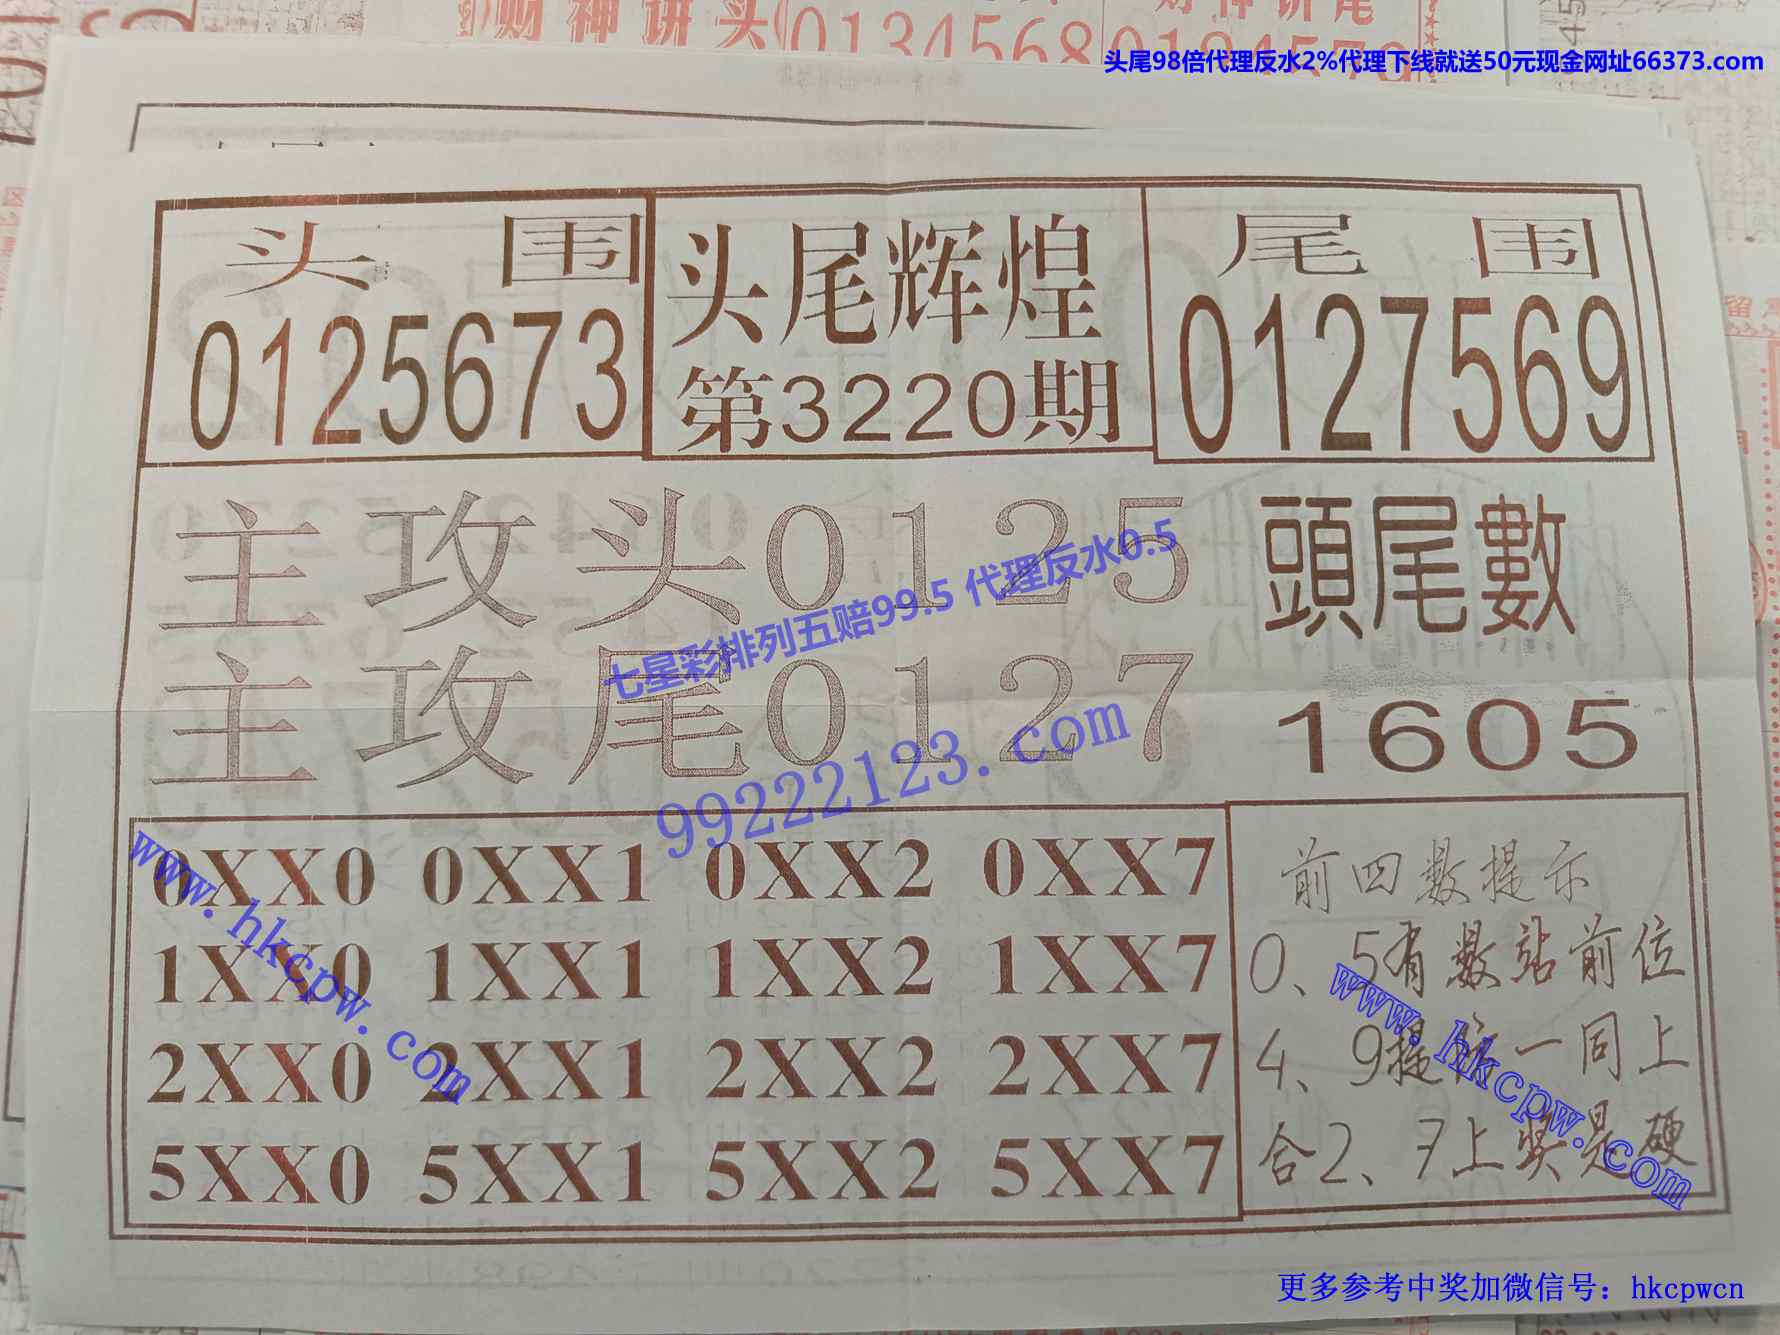 财神讲头
0134568
头尾98倍代理反水2%代理下线就送50元现金网址66373.com
头围
0125673
头尾辉煌
第3220期
尾围
0127569
主攻头0125
主攻尾0127
頭尾數
1605
七星彩排列五赔99.5 代理反水0.5
99222123.com
0XX0 0XX1 0XX2 0XX7
1XX0 1XX1 1XX2 1XX7
2XX0 2XX1 2XX2 2XX7
5XX0 5XX1 5XX2 5XX7
www.hkcpw.com
前四数提示
0、5有数站前位
4、9提 一同上
合2、7上奖是硬
www.hkcpw.com
更多参考中奖加微信号：hkcpwcn